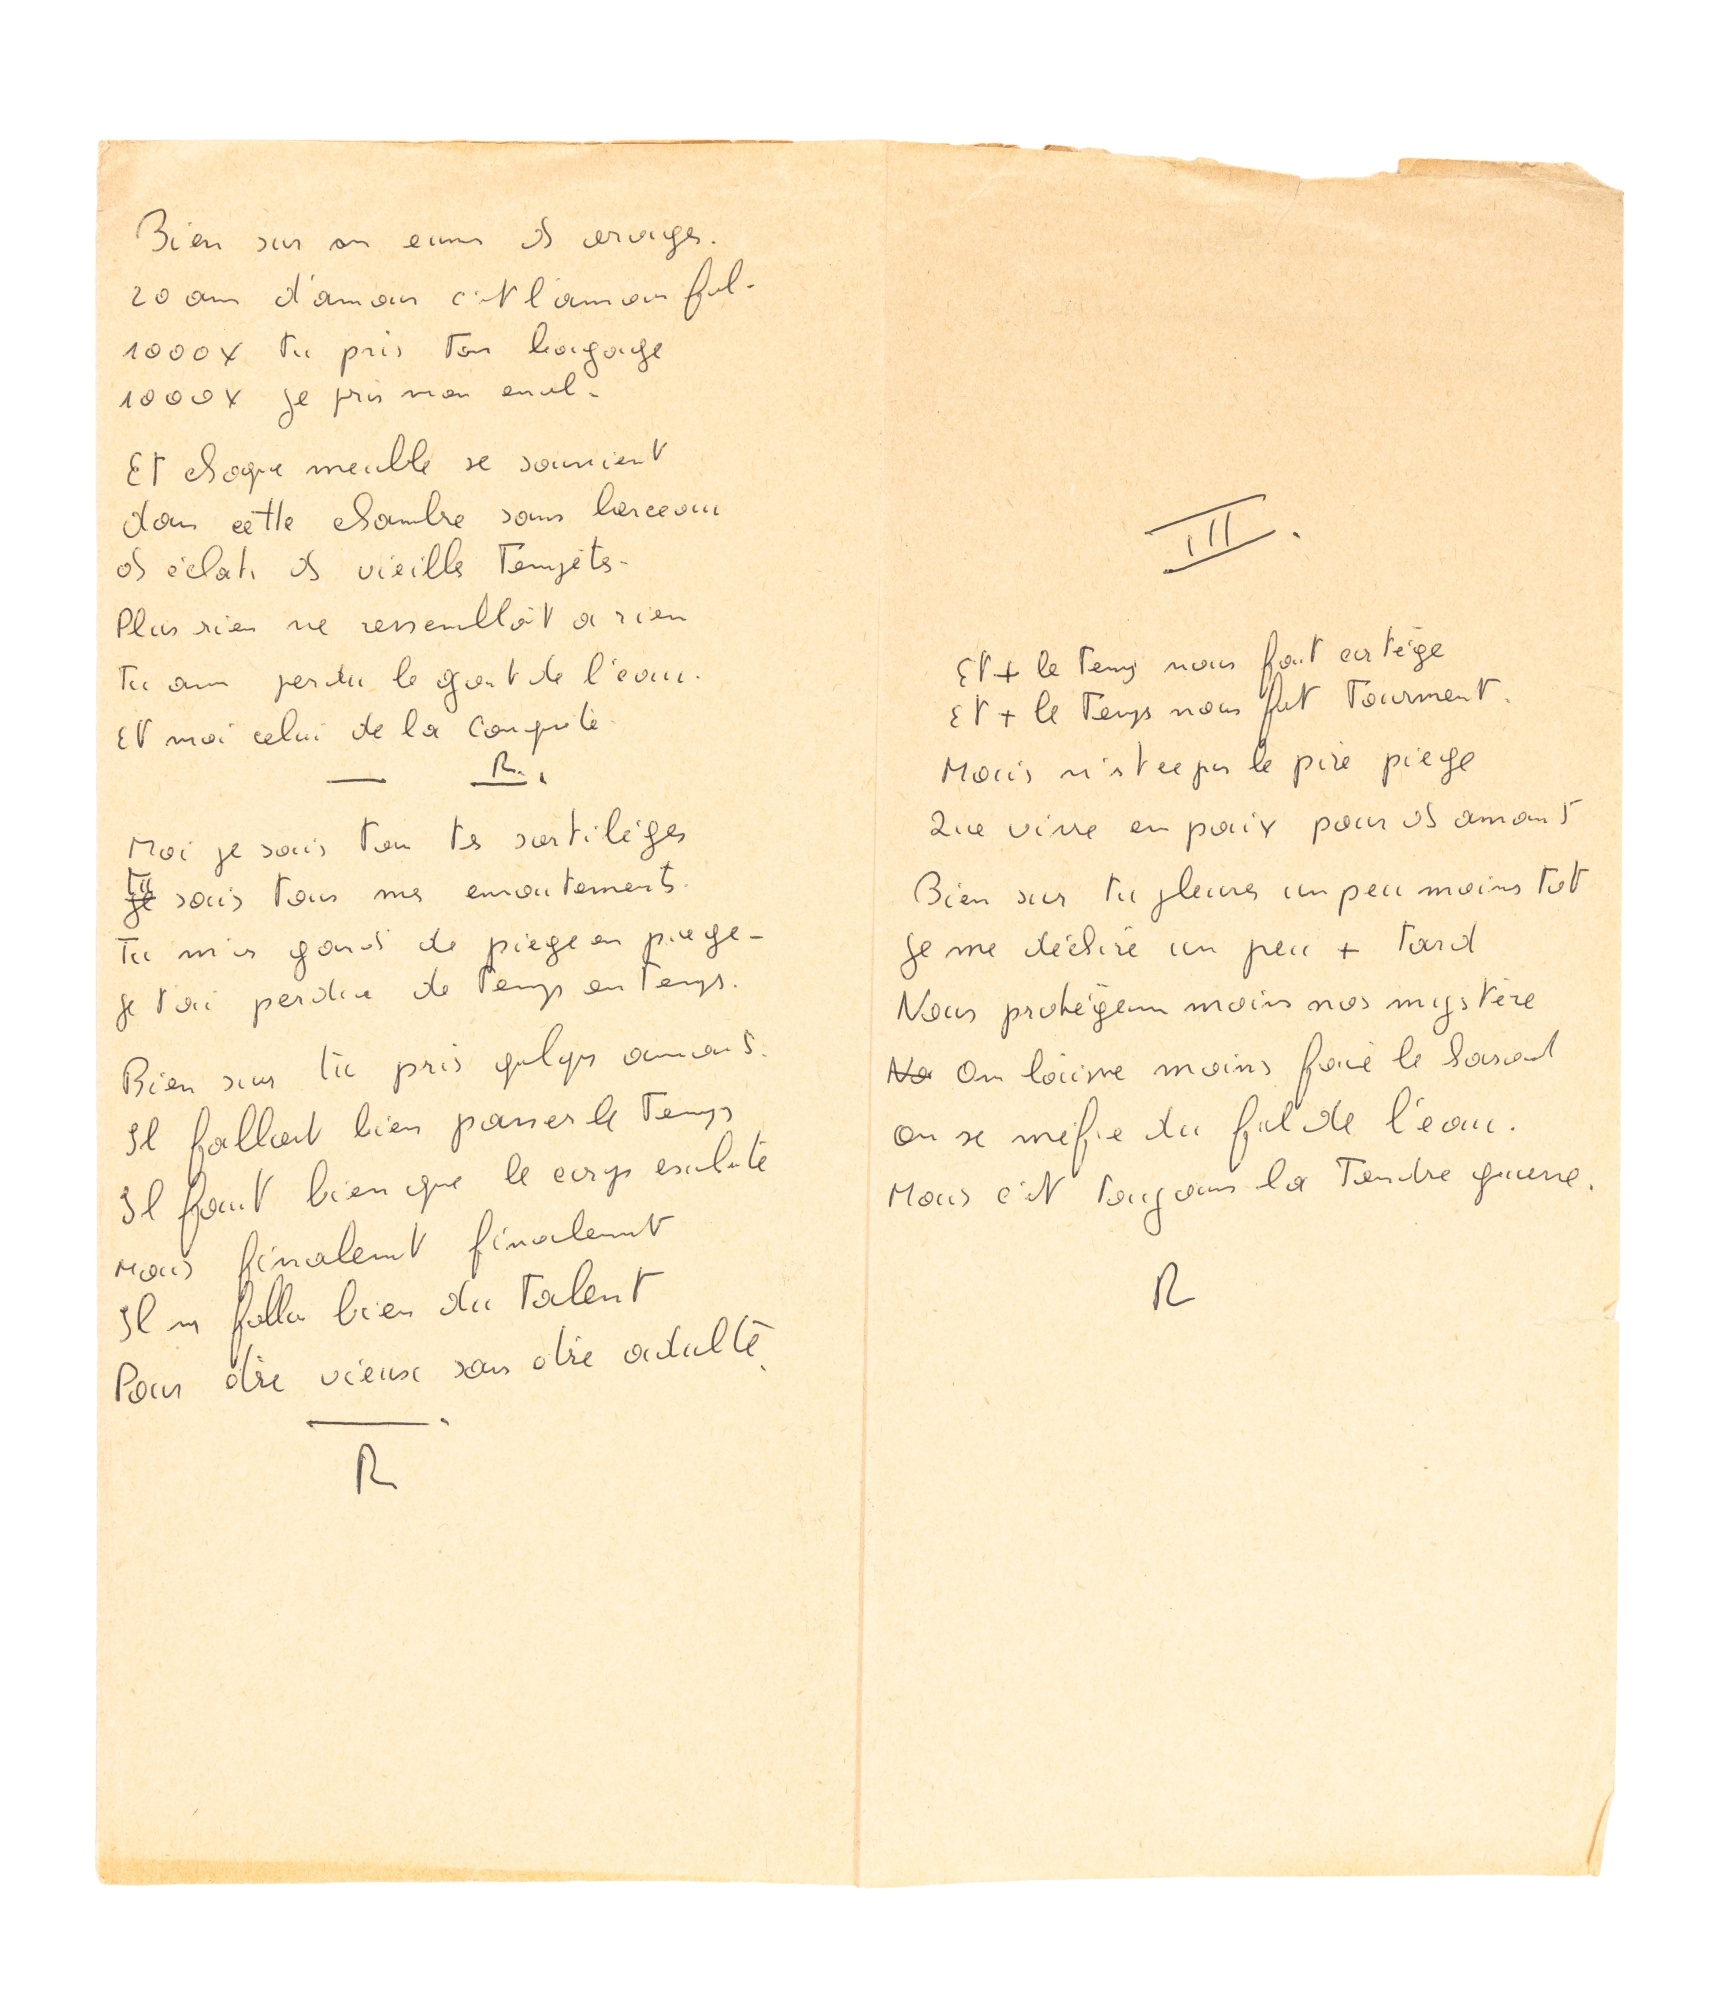 Bien sur on eumes ds orages.
20 ans d'amour c'est l'amour fol.
1000x tu pris ton bagage
1000x je pris mon envol.
Et chaque meuble se souvient
dans cette chambre sans berceau
ds éclats ds vieille Tempêts.
Plus rien ne ressemblait a rien
Tu avu perdu le gout de l'eau.
Et moi celui de la Conquete.
R.
Moi je sais tou ts sortilèges
Tu
je sais tous mes envoutements.
Tu m'as gards de piege en piege
Je t'ai perdue de Temps en Temps.
Bien sur tu pris quelqs amants.
Il fallait bien passer le Temps
Il faut bien que le corps exulte
Mais finalemt finalemnt
Il ns fallu bien du Talent
Pour être vieux sans être adulte.
R
III.
Et + le temps nous fait cortège
Et + le Temps nous fait Tourment.
Mais n'est ce pas le pire piege
Que vivre en paix pour ds amants
Bien sur tu pleures un peu moins tot
Je me déchire un peu + tard
Nous protégeons moins nos mystère
No On laisse moins faire le hasard
On se mefie du fil de l'eau.
Mais c'est toujours la Tendre guerre.
R